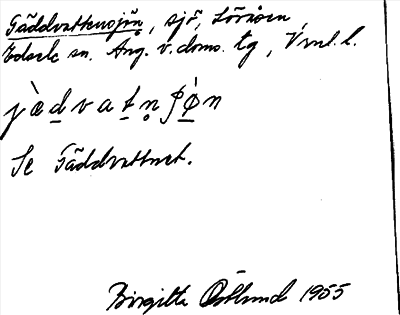 Gäddvattensjön, sjö, Lövåsen
Edsele sn. Ång. v. doms. tg, Vrnl. l.
jæ̀dvatn̥ʃø̀n
Se Gäddvattnet.
Birgitta Östlund 1955